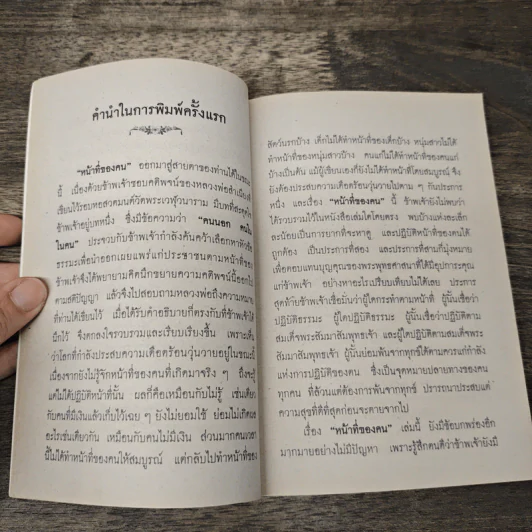 คำนำในการพิมพ์ครั้งแรก
"หน้าที่ของคน" ออกมาสู่สายตาของท่านได้ในขณะ
นี้ เนื่องด้วยข้าพเจ้าชอบคติพจน์ของหลวงพ่อสำเนียงที่
เขียนไว้รอบหอสวดมนต์วัดพระเวฬุวนาราม มีบทที่สะดุดใจ
ข้าพเจ้าอยู่บทหนึ่ง ซึ่งมีข้อความว่า "คนนอก คนใน
ในคน" ประจวบกับข้าพเจ้ากำลังค้นคว้าเลือกหาหัวข้อ
ธรรมะเพื่อนำออกเผยแพร่แก่ประชาชนตามหน้าที่ของ
ข้าพเจ้าจึงได้พยายามคิดนึกขยายความคติพจน์นี้ออกไป
ตามสติปัญญา แล้วจึงไปสอบถามหลวงพ่อถึงความหมาย
ที่ท่านได้เขียนไว้ เมื่อได้รับคำอธิบายที่ตรงกับที่ข้าพเจ้าได้
นึกไว้ จึงตกลงใจรวบรวมและเรียบเรียงขึ้น เพราะเห็น
ว่าโลกที่กำลังประสบความเดือดร้อนวุ่นวายอยู่ในขณะนี้
เนื่องจากยังไม่รู้จักหน้าที่ของคนที่เกิดมาจริง ๆ ถึงจะรู้
แต่ไม่ได้ปฏิบัติหน้าที่นั้น ผลก็คือเหมือนกับไม่รู้ เช่น
กับคนที่มีเงินแล้วเก็บไว้เฉย ๆ ยังไม่ยอมใช้ ย่อมไม่เกิดผล
อะไรเช่นเดียวกัน เหมือนกับคนไม่มีเงิน ส่วนมากคนเวลา
นี้ไม่ได้ทำหน้าที่ของคนให้สมบูรณ์ แต่กลับไปทำหน้าที่ของ
สัตว์นรกบ้าง เด็กไม่ได้ทำหน้าที่ของเด็กบ้าง หนุ่มสาวไม่ได้
ทำหน้าที่ของหนุ่มสาวบ้าง คนแก่ไม่ได้ทำหน้าที่ของคนแก่
บ้างเป็นต้น แม้ผู้เขียนเองก็ยังไม่ได้ทำหน้าที่โดยสมบูรณ์ จึง
ยังต้องประสบความเดือดร้อนวุ่นวายไปตาม ๆ กันประการ
หนึ่ง และเรื่อง "หน้าที่ของคน" นี้ ข้าพเจ้ายังไม่เคยพบว่า
ได้รวบรวมไว้ในหนังสือเล่มใดโดยตรง พบบ้างแห่งละเล็ก
ละน้อยเป็นการยากที่จะหาดู และปฏิบัติหน้าที่ของคนได้
ถูกต้อง เป็นประการที่สอง และประการที่สามก็มุ่งหมาย
เพื่อตอบแทนบุญคุณของพระพุทธศาสนาที่ได้มีอุปการะคุณ
แก่ข้าพเจ้า อย่างหาอะไรเปรียบเทียบไม่ได้เลย ประการ
สุดท้ายข้าพเจ้าเชื่อมั่นว่าผู้ใดกระทำตามหน้าที่ ผู้นั้นชื่อว่า
ปฏิบัติธรรมะ ผู้ใดปฏิบัติธรรมะ ผู้นั้นชื่อว่าปฏิบัติตาม
สมเด็จพระสัมมาสัมพุทธเจ้า และผู้ใดปฏิบัติตามสมเด็จพระ
สัมมาสัมพุทธเจ้า ผู้นั้นย่อมพ้นจากทุกข์ได้ตามควรแก่กำลัง
แห่งการปฏิบัติของตน ซึ่งเป็นจุดหมายปลายทางของคน
ทุกคน ที่ล้วนแต่ต้องการพ้นจากทุกข์ ปรารถนาประสบแต่
ความสุขที่ดีที่สุดก่อนจะตายจากไป
เรื่อง "หน้าที่ของคน" เล่มนี้ ยังมีข้อบกพร่องอีก
มากมายอย่างไม่มีปัญหา เพราะรู้สึกตนดีว่าข้าพเจ้ายังมี